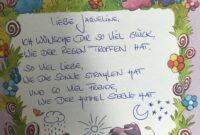 LIEBE JAQUELINE,
ICH WÜNSCHE DIR SO VIEL GLÜCK,
WIE DER REGEN TROPFEN HAT.
SO VIEL LIEBE,
WIE DIE SONNE STRAHLEN HAT
UND SO VIEL FREUDE,
WIE DER HIMMEL STERNE HAT.